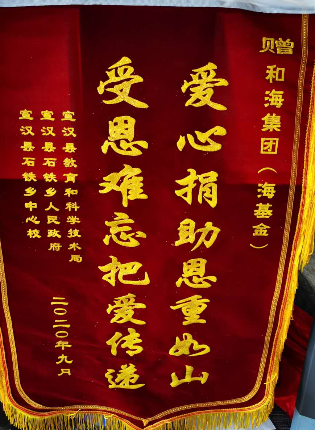 赠和海集团（海基金）
爱心捐助恩重如山
受恩难忘把爱传递
宣汉县教育和科学技术局
宣汉县石铁乡人民政府
宣汉县石铁乡中心校
二〇二〇年九月